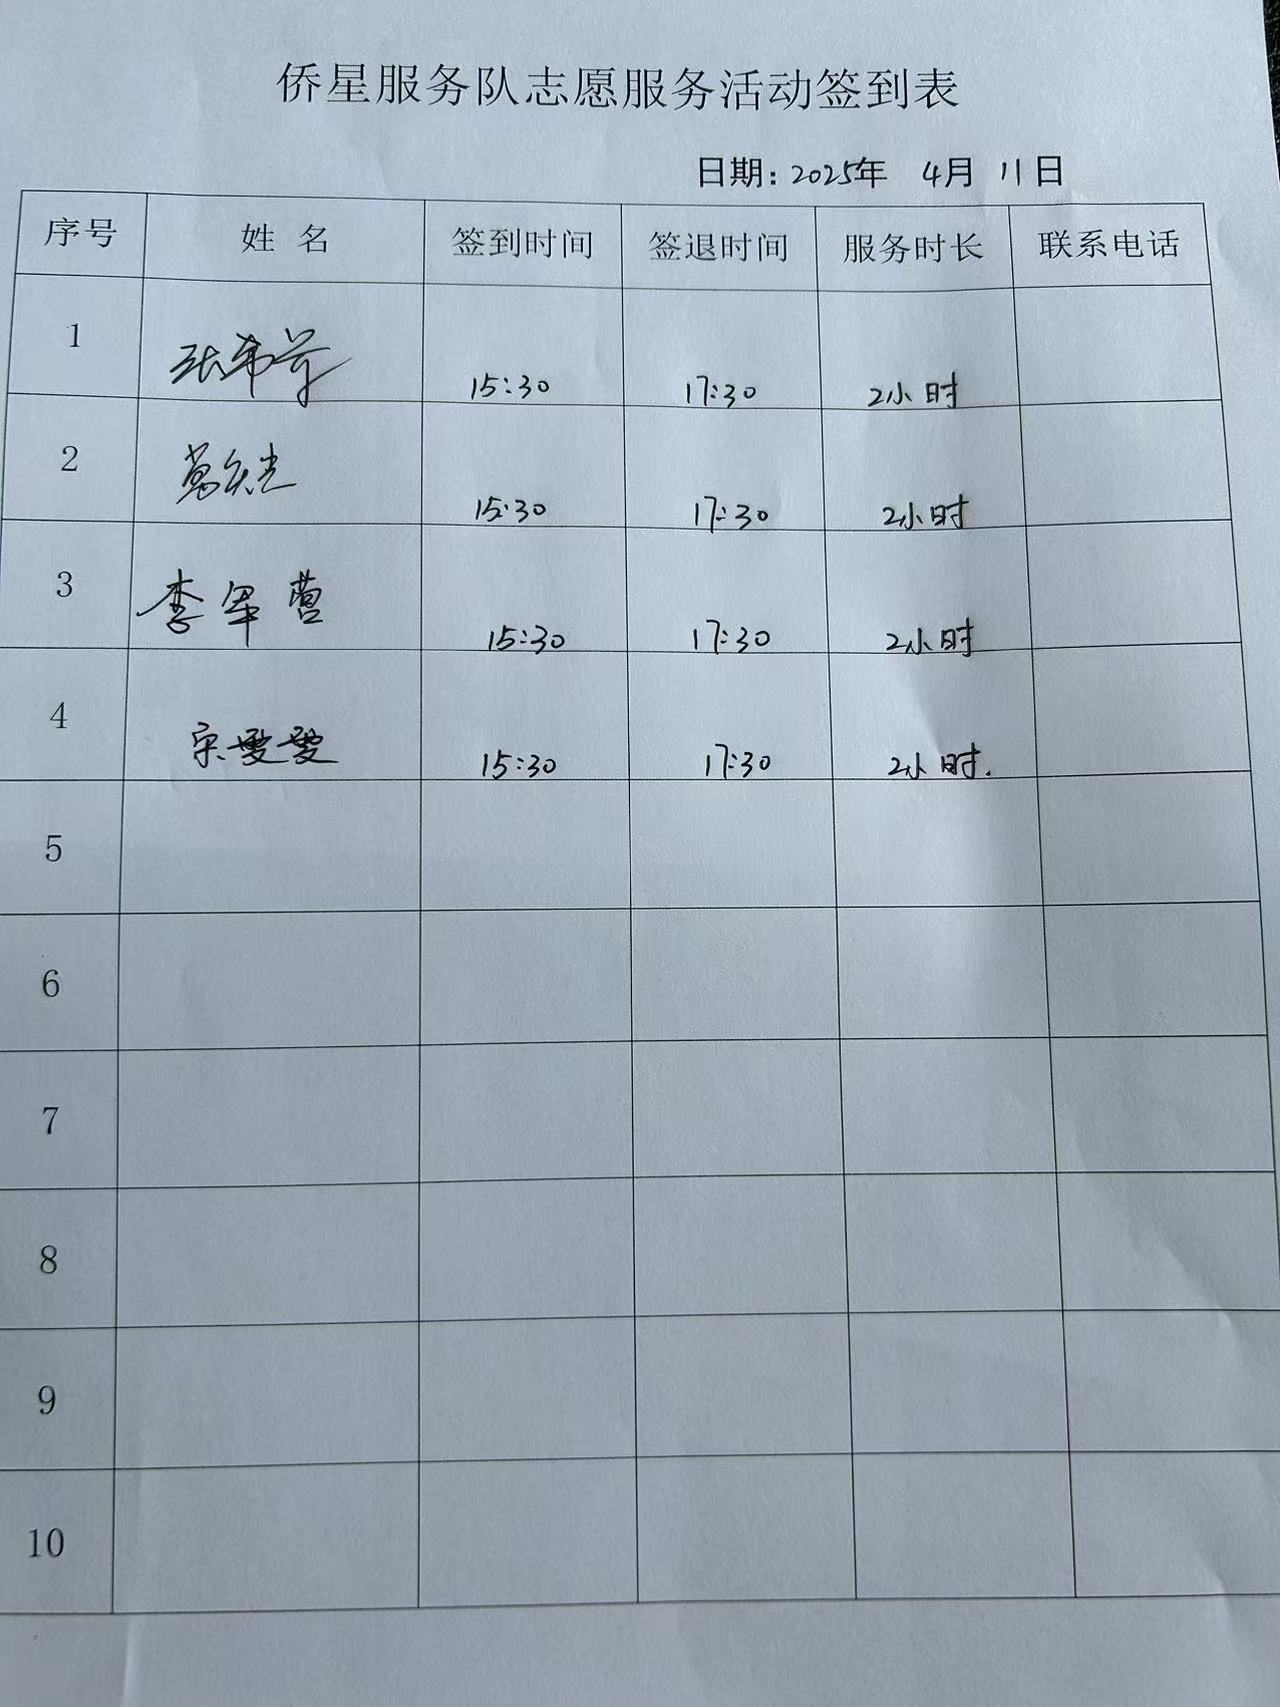 侨星服务队志愿服务活动签到表
日期: 2025年 4月 11日
序号 姓名 签到时间 签退时间 服务时长 联系电话
1 15:30 17:30 2小时
2 15:30 17:30 2小时
3 李军营 15:30 17:30 2小时
4 宋雯雯 15:30 17:30 2小时.
5
6
7
8
9
10